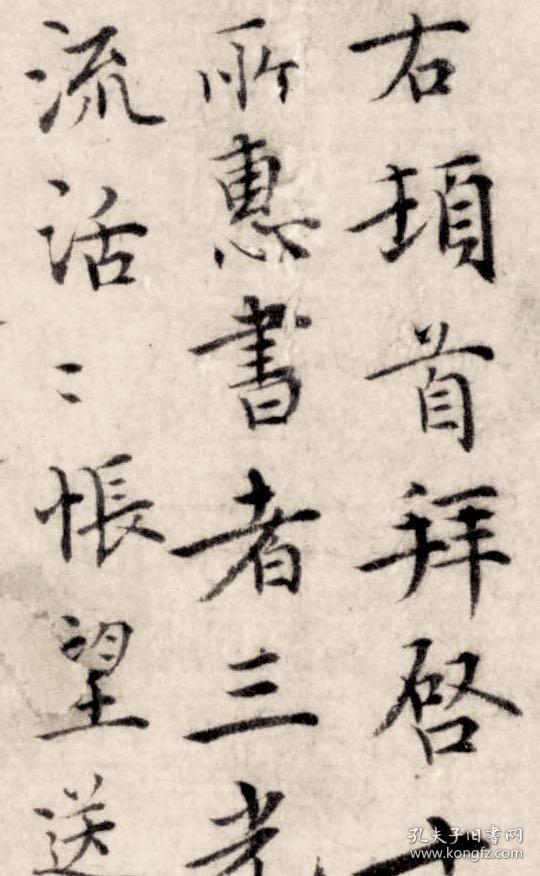 右頓首拜啓
所惠書者三
流活〻悵望送
孔夫子旧书网
www.kongfz.com